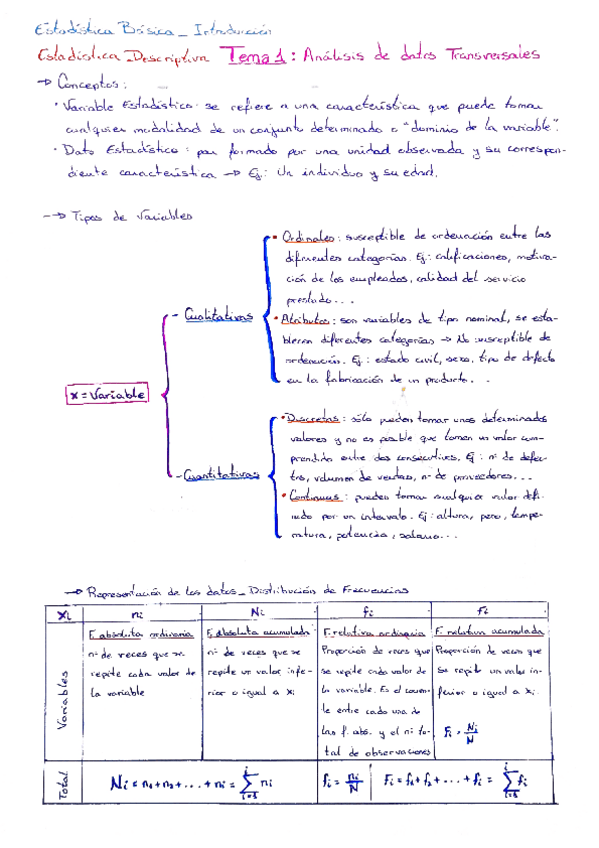 Estadística Básica_ Introducción
Estadística Descriptiva Tema 1: Análisis de datos Transversales
→ Conceptos:
· Variable Estadística: se refiere a una característica que puede tomar
cualquier modalidad de un conjunto determinado o "dominio de la variable".
· Dato Estadístico: par formado por una unidad observada y su correspon-
diente característica → Ej: Un individuo y su edad.
--→ Tipos de Variables
x = Variable
- Cualitativas
• Ordinales: susceptible de ordenación entre las
diferentes categorías. Ej: calificaciones, motiva-
ción de los empleados, calidad del servicio
prestado...
• Atributos: son variables de tipo nominal, se esta-
blecen diferentes categorías → No susceptible de
ordenación. Ej: estado civil, sexo, tipo de defecto
en la fabricación de un producto...
- Cuantitativas
• Discretas: sólo pueden tomar unos determinados
valores y no es posible que tomen un valor com-
prendido entre dos consecutivos. Ej: nº de defec-
tos, volumen de ventas, nº de proveedores...
• Continuas: pueden tomar cualquier valor defi-
nido por un intervalo. Ej: altura, peso, tempe-
ratura, potencia, salario...
→ Representación de los datos_ Distribución de Frecuencias
xi ni Ni fi Fi
Variables
F. absoluta ordinaria
nº de veces que se
repite cada valor de
la variable
F. absoluta acumulada
nº de veces que se
repite un valor infe-
rior o igual a xi
F. relativa ordinaria
Proporción de veces que
se repite cada valor de
la variable. Es el cocien-
te entre cada una de
las f. abs. y el nº to-
tal de observaciones
F. relativa acumulada
Proporción de veces que
se repite un valor in-
ferior o igual a xi.
Fi = Ni/N
Total
Ni = n1+n2+...+ni = Σ ni
i
i=1
fi = ni/N
Fi = f1+f2+...+fi = Σ fi
i
i=1